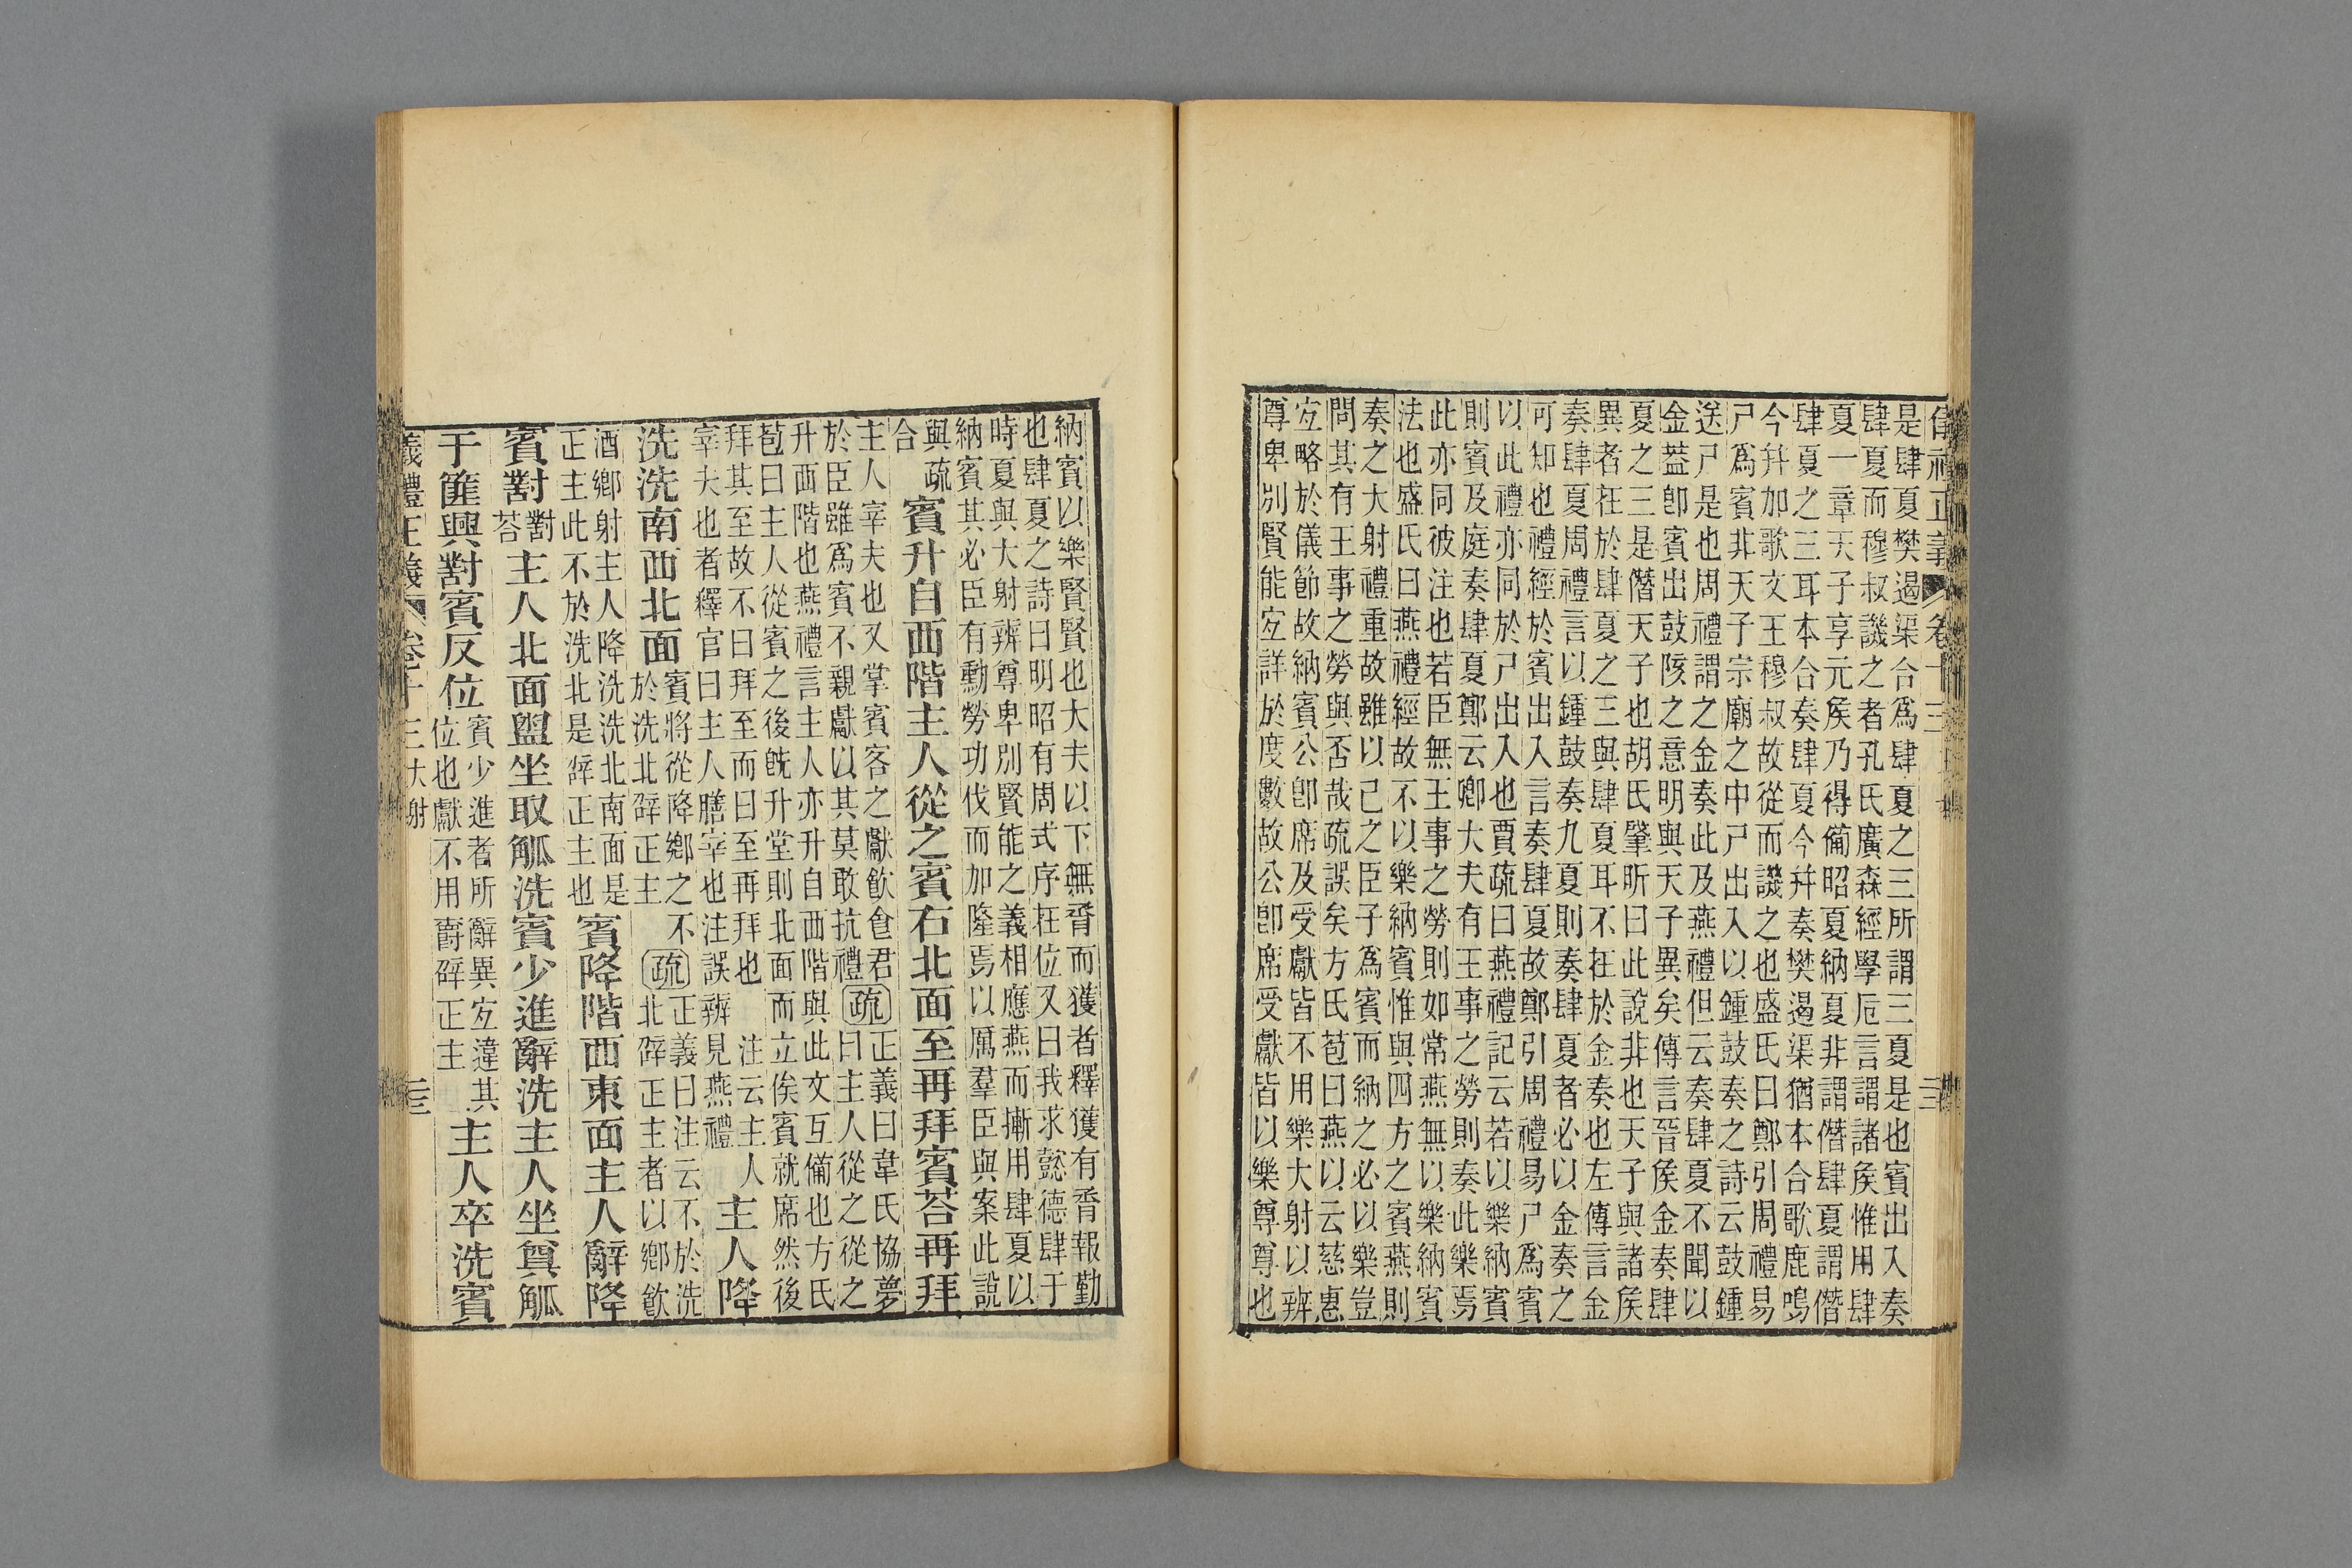 儀禮正義 卷十三
是肆夏樊遏渠合爲肆夏之三所謂三夏是也賓出入奏
肆夏而穆叔譏之者孔氏廣森經學卮言謂諸矦惟用肆
夏一章天子享元矦乃得僃昭夏納夏非謂僭肆夏謂僭
肆夏之三耳本合奏肆夏今幷奏樊遏渠猶本合歌鹿鳴
今幷加歌文王穆叔故從而譏之也盛氏曰鄭引周禮易
尸爲賓非天子宗廟之中尸出入以鍾鼓奏之詩云鼓鍾
送尸是也周禮謂之金奏此及燕禮但云奏肆夏不聞以
金葢卽賓出鼓陔之意明與天子異矣傳言晉矦金奏肆
夏之三是僭天子也胡氏肇昕曰此說非也天子與諸矦
異者在於肆夏之三與肆夏耳不在於金奏也左傳言金
奏肆夏周禮言以鍾鼓奏九夏則奏肆夏者必以金奏之
可知也禮經於賓出入言奏肆夏故鄭引周禮易尸爲賓
以此禮亦同於尸出入也賈疏曰燕禮記云若以樂納賓
則賓及庭奏肆夏鄭云卿大夫有王事之勞則奏此樂焉
此亦同彼注也若臣無王事之勞則如常燕無以樂納賓
法也盛氏曰燕禮經故不以樂納賓惟與四方之賓燕則
奏之大射禮重故雖以己之臣子爲賓而納之必以樂豈
問其有王事之勞與否哉疏誤矣方氏苞曰燕以云慈惠
宐略於儀節故納賓公卽席及受獻皆不用樂大射以辨
尊卑別賢能宐詳於度數故公卽席受獻皆以樂尊尊也
納賓以樂賢賢也大夫以下無脀而獲者釋獲有脀報勤
也肆夏之詩曰明昭有周式序在位又曰我求懿德肆于
時夏與大射辨尊卑別賢能之義相應燕而摲用肆夏以
納賓其必臣有勳勞功伐而加隆焉以厲羣臣與案此說
與疏
合
賓升自西階主人從之賓右北面至再拜賓荅再拜
主人宰夫也又掌賓客之獻飮食君
於臣雖爲賓不親獻以其莫敢抗禮
疏
正義曰韋氏協夢
曰主人從之從之
升西階也燕禮言主人亦升自西階與此文互僃也方氏
苞曰主人從賓之後旣升堂則北面而立俟賓就席然後
拜其至故不曰拜至而曰至再拜也 注云主人
宰夫也者釋官曰主人膳宰也注誤辨見燕禮
主人降
洗洗南西北面
賓將從降鄉之不
於洗北辟正主
疏
正義曰注云不於洗
北辟正主者以鄉飮
酒鄉射主人降洗洗北南面是
正主此不於洗北是辟正主也
賓降階西東面主人辭降
賓對
對
荅
主人北面盥坐取觚洗賓少進辭洗主人坐奠觚
于篚興對賓反位
賓少進者所辭異宐違其
位也獻不用爵辟正主
主人卒洗賓
義禮正義 卷十三 大射 三